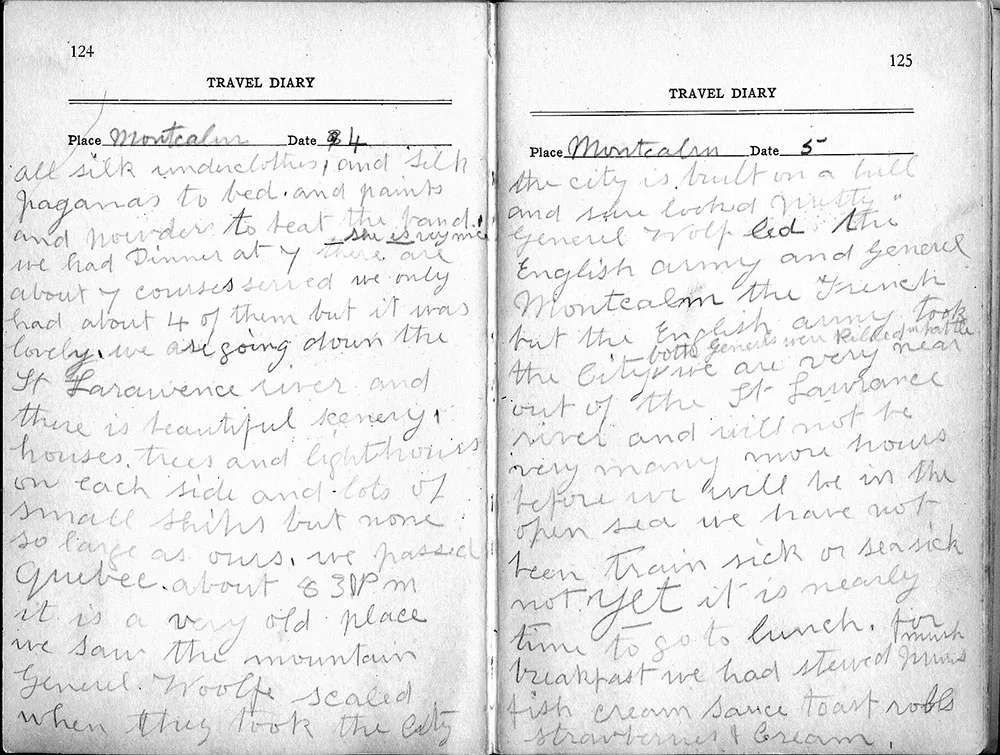 124
TRAVEL DIARY
Place Montcalm Date 4
all silk underclothes, and silk
paganas to bed. and paints
and powders to beat the band.
she is very nice
we had Dinner at 7 there are
about 7 courses served we only
had about 4 of them but it was
lovely. we are going down the
St Larawence river and
there is beautiful scenery,
houses, trees and lighthouses
on each side and lots of
small ships but none
so large as ours. we passed
Quebec. about 8 30 P m
it is a very old place
we saw the mountain
Generel. Woolfe scaled
when they took the City
125
TRAVEL DIARY
Place Montcalm Date 5
the city is built on a hill
and sure looked pretty"
Generel Wolf led the
English army and Generel
Montcalm the French
but the English army took
both Generels were Killed in battle
the City we are very near
out of the St Lawrance
river and will not be
very many more hours
before we will be in the
open sea we have not
been train sick or sea sick
not yet it is nearly
time to go to lunch. for
breakfast we had stewed prunes
mush
fish cream sauce toast rolls
strawberries & Cream.